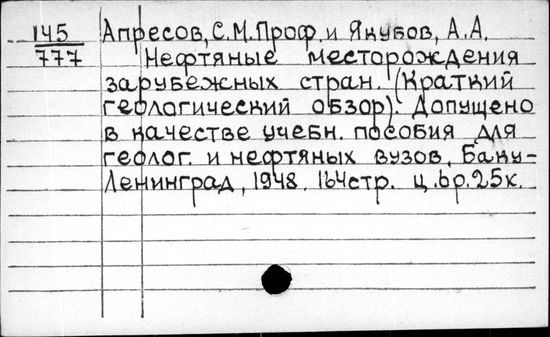 145 Апресов, С.М. Проф. и Якубов, А.А.
777 Нефтяные месторождения
зарубежных стран. (Краткий
геологический обзор). Допущено
в качестве учебн. пособия для
геолог. и нефтяных вузов. Баку-
Ленинград, 1948. 164стр. ц. 6р. 25к.